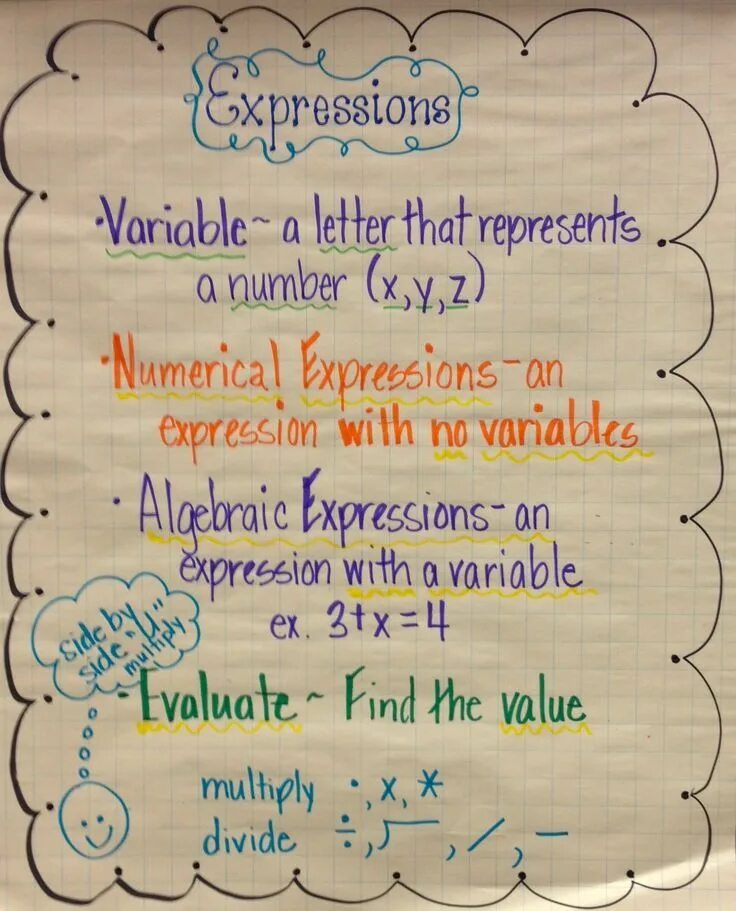 Expressions
·Variable~ a letter that represents
a number (x,y,z)
·Numerical Expressions-an
expression with no variables
· Algebraic Expressions-an
expression with a variable
ex. 3+x=4
side by
side "U"
multiply
·Evaluate~ Find the value
multiply ·, x, *
divide ÷, ⟌, /, —